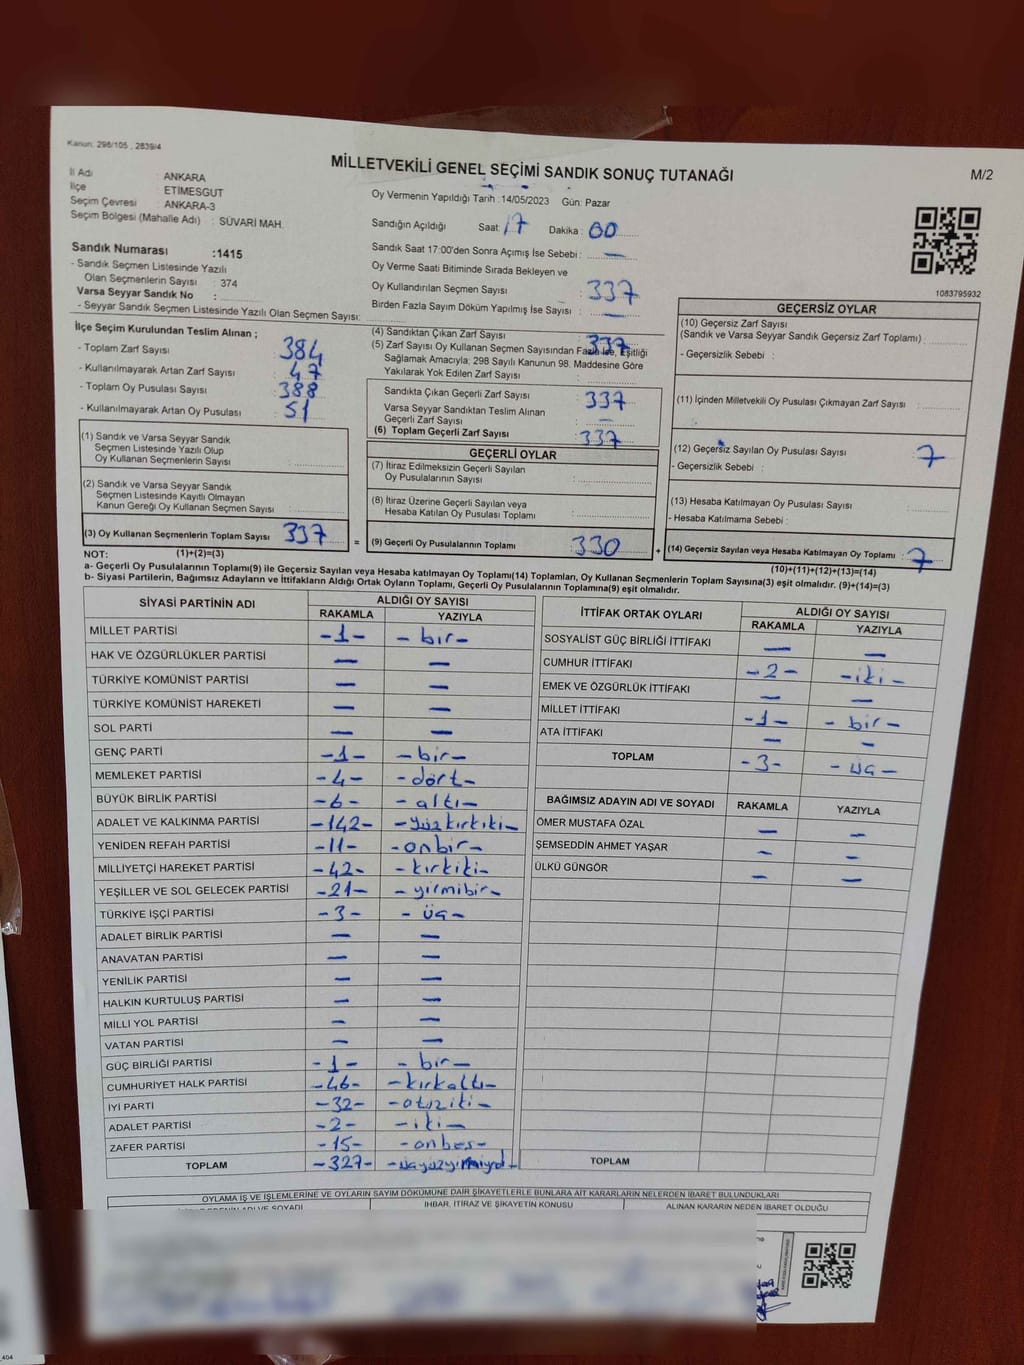 Kanun: 298/105 , 2839/4
MİLLETVEKİLİ GENEL SEÇİMİ SANDIK SONUÇ TUTANAĞI
M/2
İl Adı : ANKARA
İlçe : ETİMESGUT
Seçim Çevresi : ANKARA-3
Seçim Bölgesi (Mahalle Adı) : SÜVARİ MAH.
Sandık Numarası :1415
- Sandık Seçmen Listesinde Yazılı
Olan Seçmenlerin Sayısı : 374
Varsa Seyyar Sandık No :
- Seyyar Sandık Seçmen Listesinde Yazılı Olan Seçmen Sayısı:
Oy Vermenin Yapıldığı Tarih :14/05/2023 Gün: Pazar
Sandığın Açıldığı Saat: 17 Dakika: 00
Sandık Saat 17:00'den Sonra Açımış İse Sebebi : —
Oy Verme Saati Bitiminde Sırada Bekleyen ve
Oy Kullandırılan Seçmen Sayısı : 337
Birden Fazla Sayım Döküm Yapılmış İse Sayısı : —
1083795932
İlçe Seçim Kurulundan Teslim Alınan ;
- Toplam Zarf Sayısı : 384
- Kullanılmayarak Artan Zarf Sayısı : 47
- Toplam Oy Pusulası Sayısı : 388
- Kullanılmayarak Artan Oy Pusulası : 51
(1) Sandık ve Varsa Seyyar Sandık
Seçmen Listesinde Yazılı Olup
Oy Kullanan Seçmenlerin Sayısı :
(2) Sandık ve Varsa Seyyar Sandık
Seçmen Listesinde Kayıtlı Olmayan
Kanun Gereği Oy Kullanan Seçmen Sayısı :
(3) Oy Kullanan Seçmenlerin Toplam Sayısı : 337
(1)+(2)=(3)
(4) Sandıktan Çıkan Zarf Sayısı : 337
(5) Zarf Sayısı Oy Kullanan Seçmen Sayısından Fazla İse, Eşitliği
Sağlamak Amacıyla; 298 Sayılı Kanunun 98. Maddesine Göre
Yakılarak Yok Edilen Zarf Sayısı :
Sandıkta Çıkan Geçerli Zarf Sayısı : 337
Varsa Seyyar Sandıktan Teslim Alınan
Geçerli Zarf Sayısı : —
(6) Toplam Geçerli Zarf Sayısı : 337
GEÇERLİ OYLAR
(7) İtiraz Edilmeksizin Geçerli Sayılan
Oy Pusulalarının Sayısı :
(8) İtiraz Üzerine Geçerli Sayılan veya
Hesaba Katılan Oy Pusulası Toplamı :
= (9) Geçerli Oy Pusulalarının Toplamı : 330
GEÇERSİZ OYLAR
(10) Geçersiz Zarf Sayısı
(Sandık ve Varsa Seyyar Sandık Geçersiz Zarf Toplamı) :
- Geçersizlik Sebebi :
(11) İçinden Milletvekili Oy Pusulası Çıkmayan Zarf Sayısı :
(12) Geçersiz Sayılan Oy Pusulası Sayısı : 7
- Geçersizlik Sebebi :
(13) Hesaba Katılmayan Oy Pusulası Sayısı :
- Hesaba Katılmama Sebebi :
+ (14) Geçersiz Sayılan veya Hesaba Katılmayan Oy Toplamı : 7
(10)+(11)+(12)+(13)=(14)
NOT:
a- Geçerli Oy Pusulalarının Toplamı(9) ile Geçersiz Sayılan veya Hesaba katılmayan Oy Toplamı(14) Toplamları, Oy Kullanan Seçmenlerin Toplam Sayısına(3) eşit olmalıdır. (9)+(14)=(3)
b- Siyasi Partilerin, Bağımsız Adayların ve İttifakların Aldığı Ortak Oyların Toplamı, Geçerli Oy Pusulalarının Toplamına(9) eşit olmalıdır.
SİYASİ PARTİNİN ADI ALDIĞI OY SAYISI
RAKAMLA YAZIYLA
MİLLET PARTİSİ -1- -bir-
HAK VE ÖZGÜRLÜKLER PARTİSİ — —
TÜRKİYE KOMÜNİST PARTİSİ — —
TÜRKİYE KOMÜNİST HAREKETİ — —
SOL PARTİ — —
GENÇ PARTİ -1- -bir-
MEMLEKET PARTİSİ -4- -dört-
BÜYÜK BİRLİK PARTİSİ -6- -altı-
ADALET VE KALKINMA PARTİSİ -142- -yüzkırkiki-
YENİDEN REFAH PARTİSİ -11- -onbir-
MİLLİYETÇİ HAREKET PARTİSİ -42- -kırkiki-
YEŞİLLER VE SOL GELECEK PARTİSİ -21- -yirmibir-
TÜRKİYE İŞÇİ PARTİSİ -3- -üç-
ADALET BİRLİK PARTİSİ — —
ANAVATAN PARTİSİ — —
YENİLİK PARTİSİ — —
HALKIN KURTULUŞ PARTİSİ — —
MİLLİ YOL PARTİSİ — —
VATAN PARTİSİ — —
GÜÇ BİRLİĞİ PARTİSİ -1- -bir-
CUMHURİYET HALK PARTİSİ -46- -kırkaltı-
İYİ PARTİ -32- -otuziki-
ADALET PARTİSİ -2- -iki-
ZAFER PARTİSİ -15- -onbeş-
TOPLAM -327-
İTTİFAK ORTAK OYLARI ALDIĞI OY SAYISI
RAKAMLA YAZIYLA
SOSYALİST GÜÇ BİRLİĞİ İTTİFAKI — —
CUMHUR İTTİFAKI -2- -iki-
EMEK VE ÖZGÜRLÜK İTTİFAKI — —
MİLLET İTTİFAKI -1- -bir-
ATA İTTİFAKI — —
TOPLAM -3- -üç-
BAĞIMSIZ ADAYIN ADI VE SOYADI RAKAMLA YAZIYLA
ÖMER MUSTAFA ÖZAL — —
ŞEMSEDDİN AHMET YAŞAR — —
ÜLKÜ GÜNGÖR — —
TOPLAM
OYLAMA İŞ VE İŞLEMLERİNE VE OYLARIN SAYIM DÖKÜMÜNE DAİR ŞİKAYETLERLE BUNLARA AİT KARARLARIN NELERDEN İBARET BULUNDUKLARI
ADI VE SOYADI İHBAR, İTİRAZ VE ŞİKAYETİN KONUSU ALINAN KARARIN NEDEN İBARET OLDUĞU
404